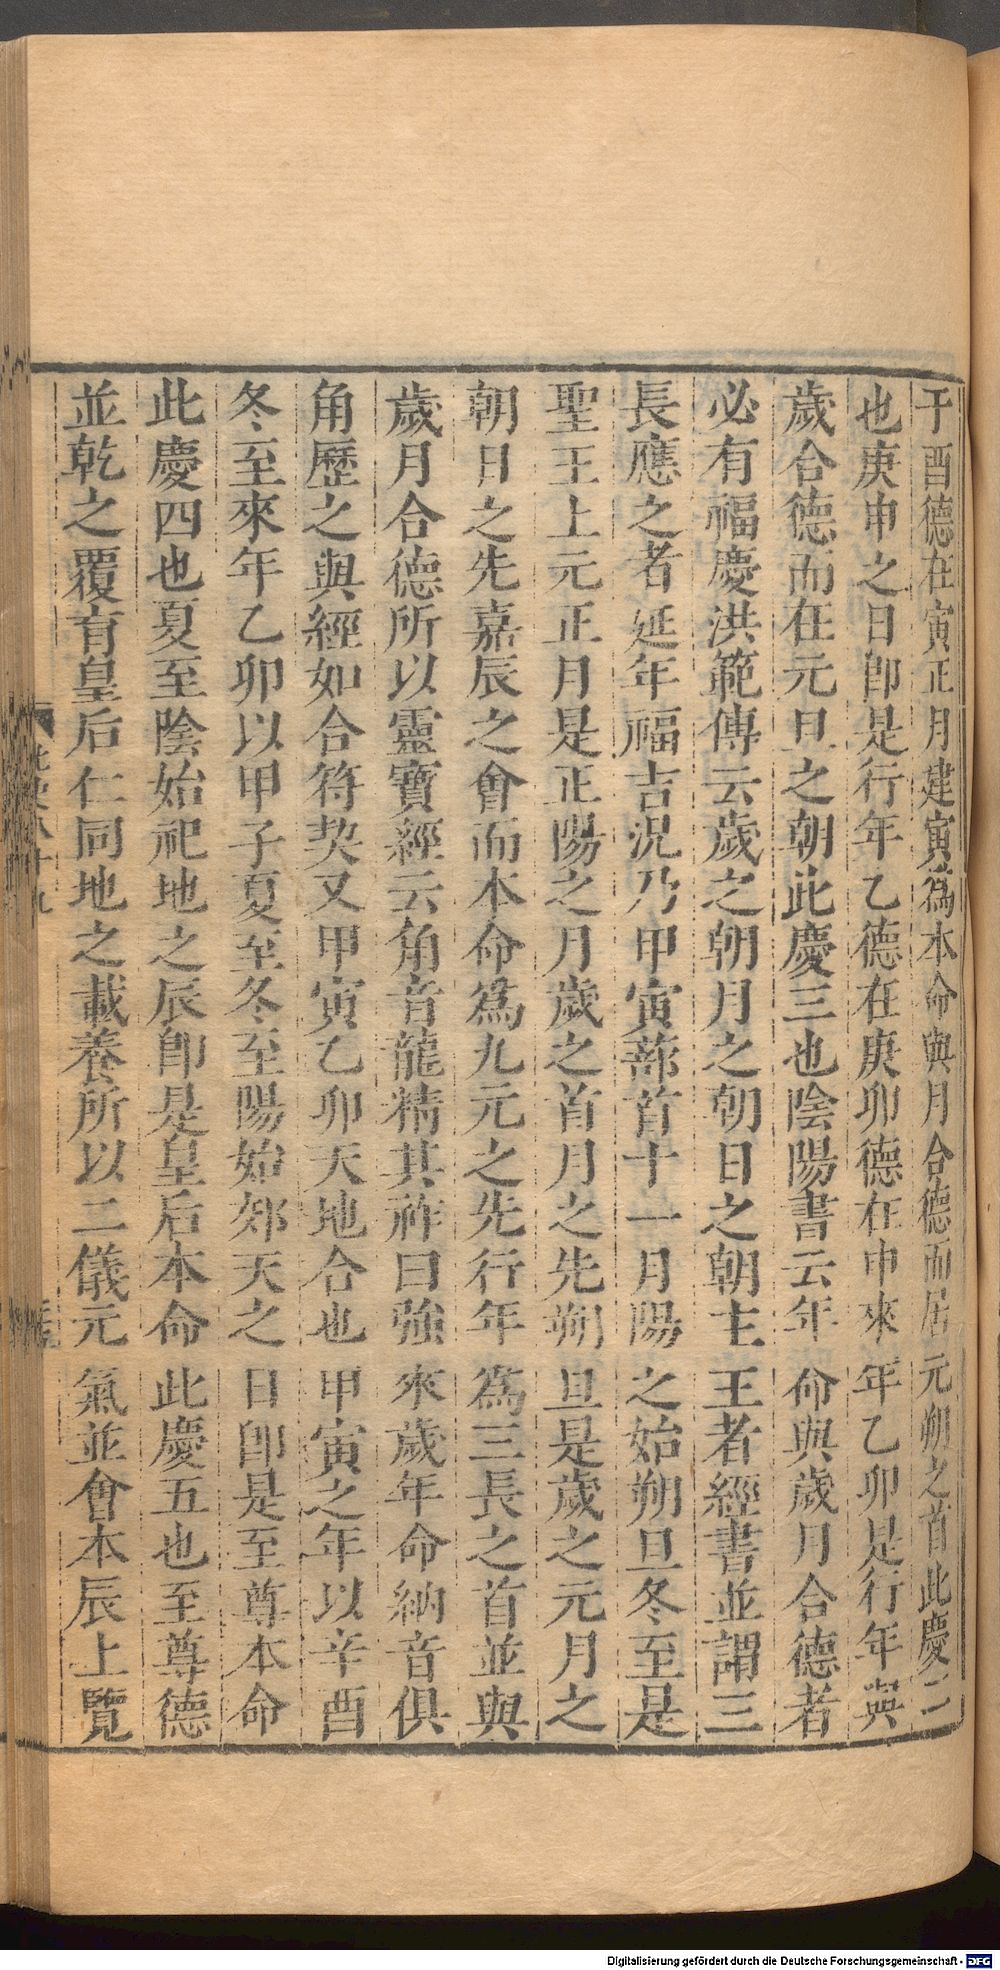 于酉德在寅正月建寅爲本命與月合德而居元朔之首此慶二
也庚申之日卽是行年乙德在庚卯德在申來年乙卯是行年與
歲合德而在元旦之朝此慶三也陰陽書云年命與歲月合德者
必有福慶洪範傳云歲之朝月之朝日之朝主王者經書並謂三
長應之者延年福吉況乃甲寅蔀首十一月陽之始朔旦冬至是
聖王上元正月是正陽之月歲之首月之先朔旦是歲之元月之
朝日之先嘉辰之會而本命爲九元之先行年爲三長之首並與
歲月合德所以靈寶經云角音龍精其祚曰強來歲年命納音俱
角歷之與經如合符契又甲寅乙卯天地合也甲寅之年以辛酉
冬至來年乙卯以甲子夏至冬至陽始郊天之日卽是至尊本命
此慶四也夏至陰始祀地之辰卽是皇后本命此慶五也至尊德
並乾之覆育皇后仁同地之載養所以二儀元氣並會本辰上覽
Digitalisierung gefördert durch die Deutsche Forschungsgemeinschaft - DFG